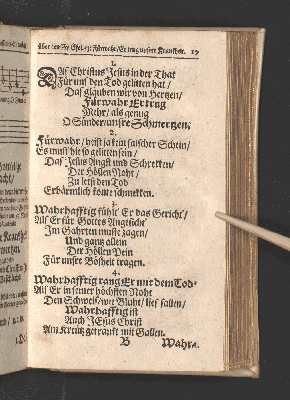 über den Es. Esel. 53: Fürwahr/Er trug unsere Kranckh. 17
1.
Daß Christus Jesus in der That
Für uns den Tod gelitten hat/
Das glauben wir von Hertzen/
Fürwahr Er trug
Mehr/ als genug
O Sünder/ unsre Schmertzen.
2.
Fürwahr/ heist ja kein falscher Schein/
Es must hie so gelitten sein/
Daß Jesus Angst und Schrekken/
Der Höllen Noht/
Zu letst den Tod
Erbärmlich konte schmekken.
3.
Wahrhafftig fühlt Er das Gericht/
Als Er für Gottes Angesicht
Im Gahrten muste zagen/
Und gantz allein
Der Höllen Pein
Für unsre Bosheit tragen.
4.
Wahrhafftig rang Er mit dem Tod/
Als Er in seiner höchsten Noht
Den Schweis/ wie Bluht/ lies fallen/
Wahrhafftig ist
Auch JEsus Christ
Am Kreutz getränkt mit Gallen.
B Wahr-